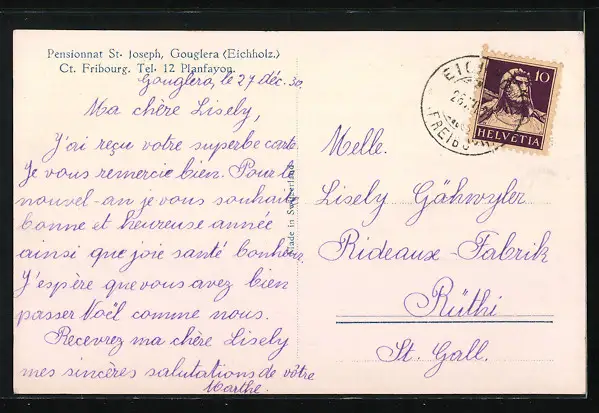 Pensionnat St. Joseph, Gouglera (Eichholz.)
Ct. Fribourg. Tel. 12 Planfayon.
Gouglera, le 27 déc. 30.
Ma chère Lisely,
J'ai reçu votre superbe carte.
Je vous remercie bien. Pour le
nouvel-an je vous souhaite
bonne et heureuse année
ainsi que joie santé bonheur.
J'espère que vous avez bien
passer Noël comme nous.
Recevrez ma chère Lisely
mes sincères salutations de vôtre
Marthe.
Made in Switzerland
10
HELVETIA
Melle.
Lisely Gähwyler
Rideaux-Fabrik
Rüthi
St. Gall.